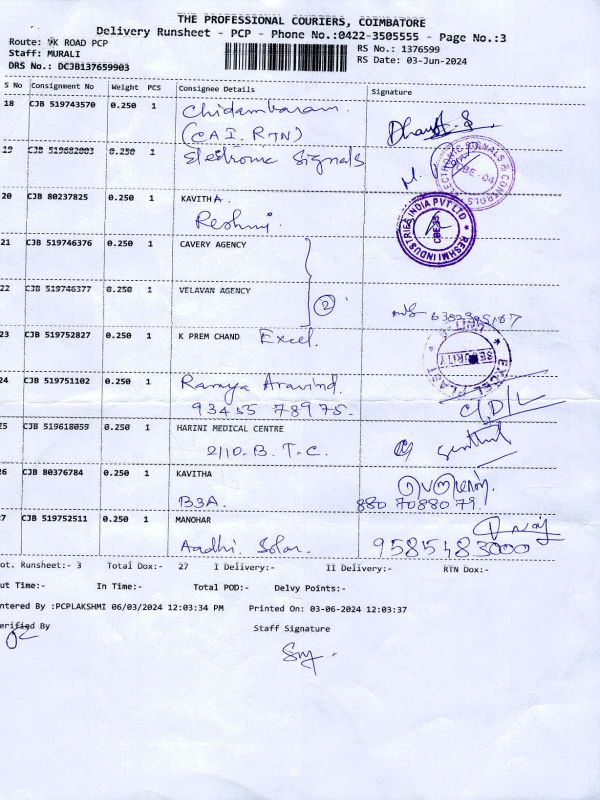 THE PROFESSIONAL COURIERS, COIMBATORE
Delivery Runsheet - PCP - Phone No.:0422-3505555 - Page No.:3
Route: VK ROAD PCP
RS No.: 1376599
Staff: MURALI
RS Date: 03-Jun-2024
DRS No.: DCJB137659903
S No Consignment No Weight PCS Consignee Details Signature
18 CJB 519743570 0.250 1 Chidambaram
(CAI. RTN)
19 CJB 519882003 0.250 1 Electronic Signals
ELECTRONIC SIGNALS & CONTROLS
20 CJB 80237825 0.250 1 KAVITHA.
Reshmi.
RESHMI INDUSTRIES INDIA PVT LTD
21 CJB 519746376 0.250 1 CAVERY AGENCY
2
22 CJB 519746377 0.250 1 VELAVAN AGENCY
23 CJB 519752827 0.250 1 K PREM CHAND Excel.
SECURITY
24 CJB 519751102 0.250 1 Ramya Aravind.
93455 78975.
25 CJB 519618059 0.250 1 HARINI MEDICAL CENTRE
2/10-B. T-C.
26 CJB 80376784 0.250 1 KAVITHA
B3A.
880 7088079
27 CJB 519752511 0.250 1 MANOHAR
Aadhi Solar. 9585483000
ot. Runsheet:- 3 Total Dox:- 27 I Delivery:- II Delivery:- RTN Dox:-
ut Time:- In Time:- Total POD:- Delvy Points:-
ntered By :PCPLAKSHMI 06/03/2024 12:03:34 PM Printed On: 03-06-2024 12:03:37
erified By Staff Signature